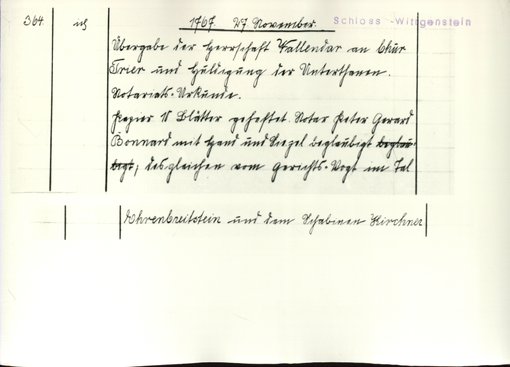 364 1767 27 November. Schloss -Wittgenstein
Übergabe der Herrschaft Vallendar an Chur
Trier und Huldigung der Unterthanen.
Notariats-Urkunde.
Papier 11 Blätter geheftet. Notar Peter Gerard
Bonnard mit Hand und Siegel beglaubigt beglau-
bigt, desgleichen vom Gerichts-Vogt im Tal
Ehrenbreitstein und dem Schabinen Kirchner